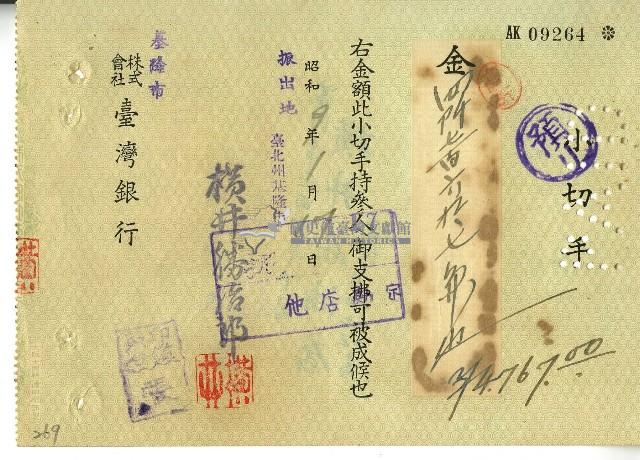 AK 09264
小切手
預
金 四阡七百六拾七円也
¥4,767.00
右金額此小切手持參人御支拂可被成候也
昭和9年1月 日
振出地 臺北州基隆市
橫井勝治郎
基隆市
株式會社 臺灣銀行
國史館臺灣文獻館
TAIWAN HISTORICA
他店
269